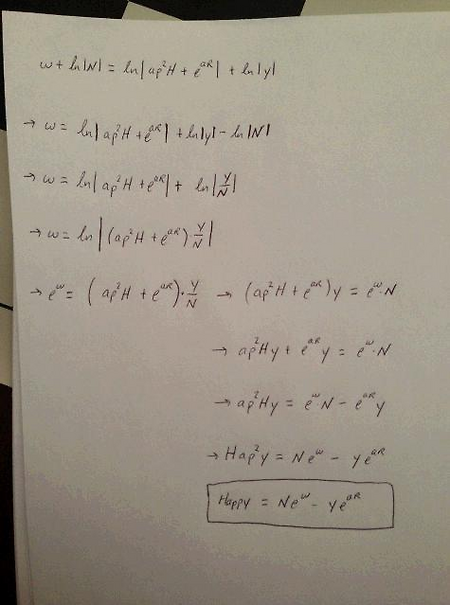 w + ln|N| = ln|ap²H + e^{aR}| + ln|y|
→ w = ln|ap²H + e^{aR}| + ln|y| - ln|N|
→ w = ln|ap²H + e^{aR}| + ln|y/N|
→ w = ln|(ap²H + e^{aR}) y/N|
→ e^w = (ap²H + e^{aR}) · y/N → (ap²H + e^{aR})y = e^w · N
→ ap²Hy + e^{aR}y = e^w · N
→ ap²Hy = e^w · N - e^{aR}y
→ Hap²y = Ne^w - ye^{aR}
Happy = Ne^w - ye^{aR}